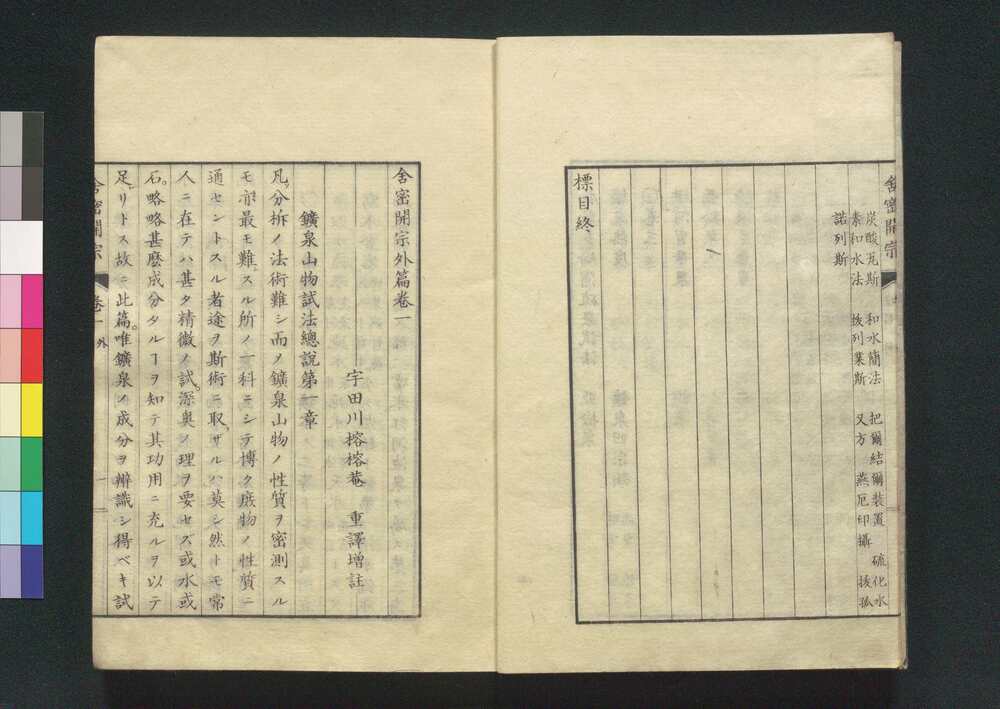 舍密開宗
炭酸瓦斯 和水簡法 把爾結爾装置 硫化水
素和水法 抜列業斯 又方 燕厄印攝 抜孤
諾列斯
標目終
舍密開宗外篇卷一
宇田川榕榕菴 重譯增註
鑛泉山物試法總說第一章
凡ソ分拆ノ法術難シ而ノ鑛泉山物ノ性質ヲ密測スル
モ亦最モ難スル所ノ一科ニシテ博ク庶物ノ性質ニ
通セントスル者途ヲ斯術ニ取ザルハ莫シ然トモ常
人ニ在テハ甚タ精微ノ試深奥ノ理ヲ要セズ或水或
石略略甚麽成分タルヿヲ知テ其功用ニ充ルヲ以テ
足リトス故ニ此篇唯鑛泉ノ成分ヲ辨識シ得ベキ試
舍密開宗 卷一外 一